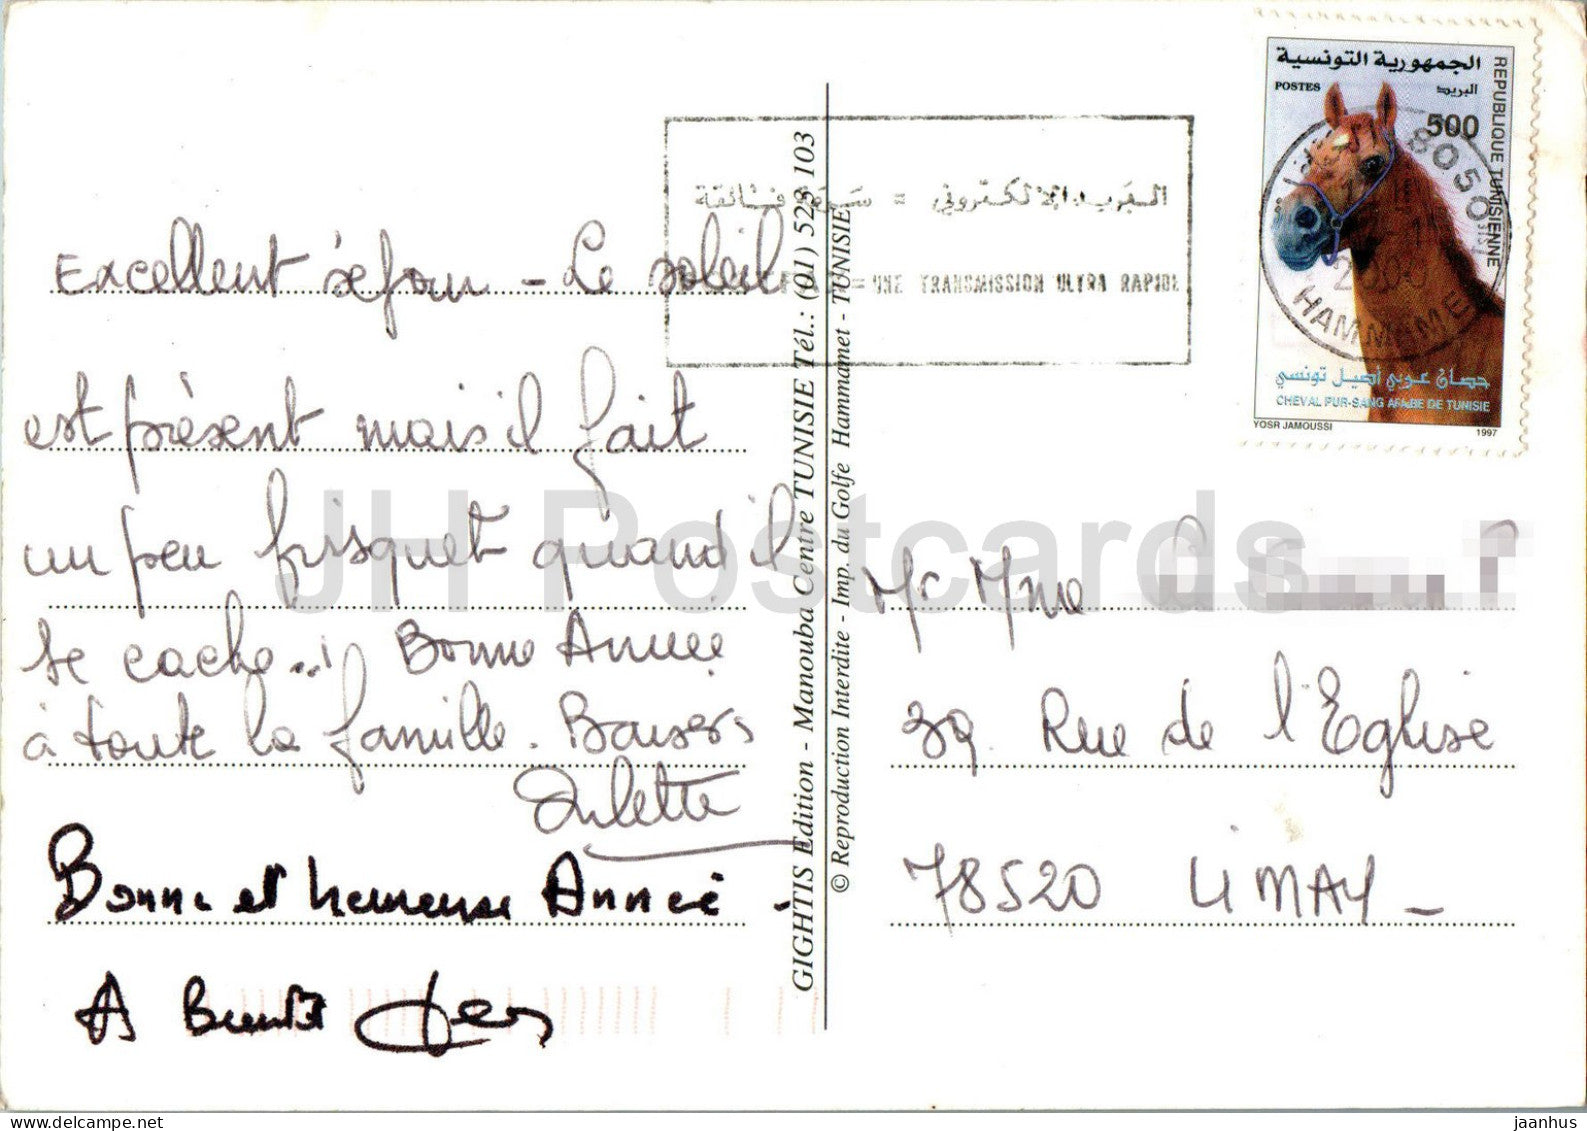 Excellent séjour - Le soleil
est présent mais il fait
un peu frisquet quand il
se cache...! Bonne Année
à toute la famille. Baisers
Juliette
Bonne et heureuse Année -
A Bientôt
GIGHTIS Edition - Manouba Centre TUNISIE Tél.: (01) 523 103
© Reproduction Interdite - Imp. du Golfe Hammamet - TUNISIE
البريد الإلكتروني = سرعة فائقة
= UNE TRANSMISSION ULTRA RAPIDE
الجمهورية التونسية
POSTES
البريد
500
REPUBLIQUE TUNISIENNE
8050
HAMMAMET
حصان عربي أصيل تونسي
CHEVAL PUR-SANG ARABE DE TUNISIE
YOSR JAMOUSSI 1997
Mr Mme
39 Rue de l'Eglise
78520 LIMAY -
JH Postcards
jaanhus
HipPostcard.com